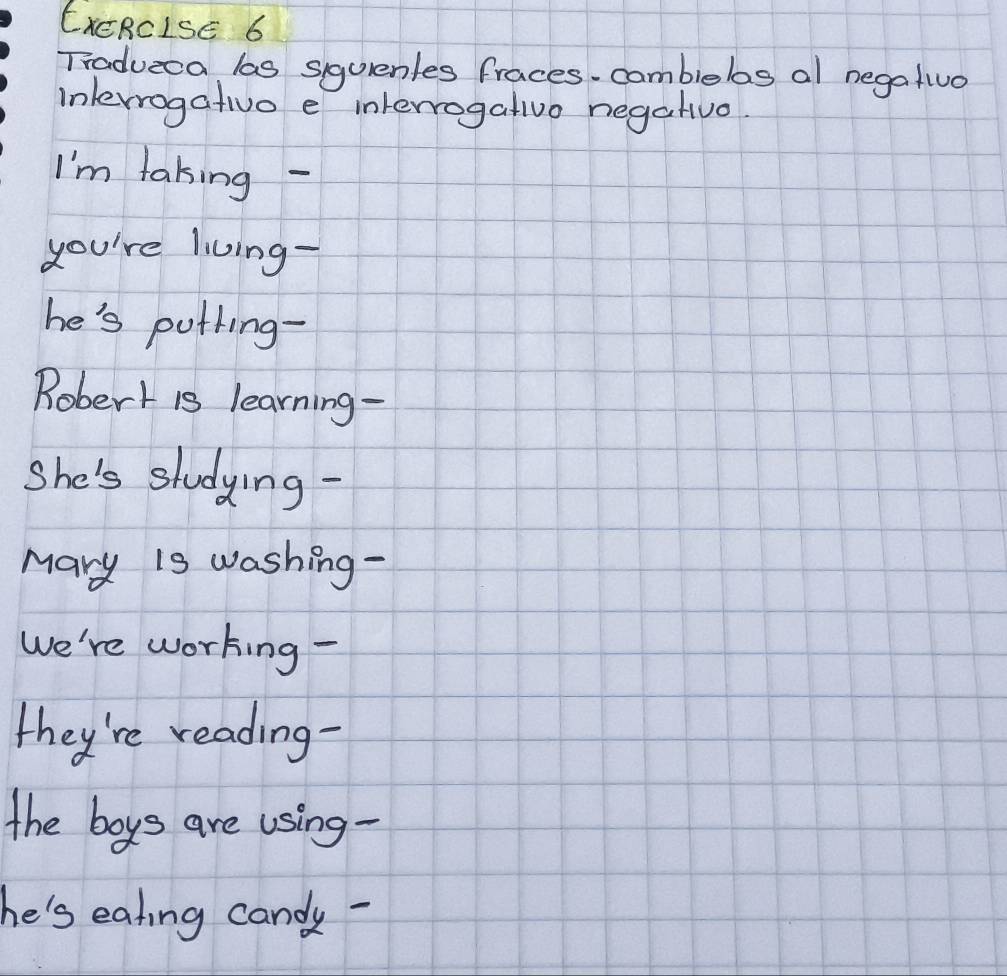 EXERCISE 6
Traduzca las siguientes fraces. cambielas al negativo
interrogativo e interrogativo negativo.
I'm taking -
you're living -
he's putting -
Robert is learning -
She's studying -
Mary is washing -
We're working -
they're reading -
the boys are using -
he's eating candy -